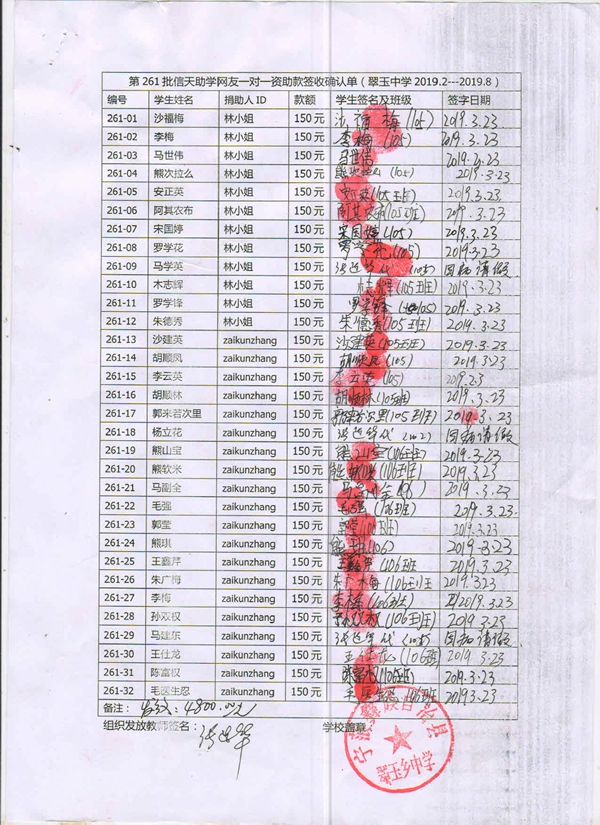 第261批信天助学网友一对一资助款签收确认单（翠玉中学2019.2---2019.8）
编号 学生姓名 捐助人ID 款额 学生签名及班级 签字日期
261-01 沙福梅 林小姐 150元 沙福梅(105) 2019.3.23
261-02 李梅 林小姐 150元 李梅(105) 2019.3.23
261-03 马世伟 林小姐 150元 马世伟 2019.3.23
261-04 熊次拉么 林小姐 150元 熊次拉么(105) 2019.3.23
261-05 安正英 林小姐 150元 安正英(105班) 2019.3.23
261-06 阿其农布 林小姐 150元 阿其农布(105班) 2019.3.23
261-07 宋国婷 林小姐 150元 宋国婷(105) 2019.3.23
261-08 罗学花 林小姐 150元 罗学花(105) 2019.3.23
261-09 马学英 林小姐 150元 (105) 因病请假
261-10 木志辉 林小姐 150元 木志辉(105班) 2019.3.23
261-11 罗学锋 林小姐 150元 罗学锋(105) 2019.3.23
261-12 朱德秀 林小姐 150元 朱德秀(105班) 2019.3.23
261-13 沙建英 zaikunzhang 150元 沙建英(105班) 2019.3.23
261-14 胡顺凤 zaikunzhang 150元 胡顺凤(105) 2019.3.23
261-15 李云英 zaikunzhang 150元 李云英(105) 2019.2.3
261-16 胡顺林 zaikunzhang 150元 胡顺林(105班) 2019.3.23
261-17 郭来若次里 zaikunzhang 150元 郭来若次里(105班) 2019.3.23
261-18 杨立花 zaikunzhang 150元 因病请假
261-19 熊山宝 zaikunzhang 150元 熊山宝(106班) 2019.3.23
261-20 熊软米 zaikunzhang 150元 熊软米(106班) 2019.3.23
261-21 马副全 zaikunzhang 150元 马副全 2019.3.23
261-22 毛强 zaikunzhang 150元 毛强(106班) 2019.3.23
261-23 郭莹 zaikunzhang 150元 郭莹(106班) 2019.3.23
261-24 熊琪 zaikunzhang 150元 熊琪(106) 2019.3.23
261-25 王鑫芹 zaikunzhang 150元 王鑫芹(106班) 2019.3.23
261-26 朱广梅 zaikunzhang 150元 朱广梅(106班) 2019.3.23
261-27 李梅 zaikunzhang 150元 李梅(106班) 2019.3.23
261-28 孙双权 zaikunzhang 150元 孙双权(106班) 2019.3.23
261-29 马建东 zaikunzhang 150元 因病请假
261-30 王仕龙 zaikunzhang 150元 王仕龙(106班) 2019.3.23
261-31 陈富权 zaikunzhang 150元 陈富权(106班) 2019.3.23
261-32 毛医生忍 zaikunzhang 150元 毛医生忍 106班 2019.3.23
备注： 4800.00元
组织发放教师签名： 学校盖章
翠玉乡中学